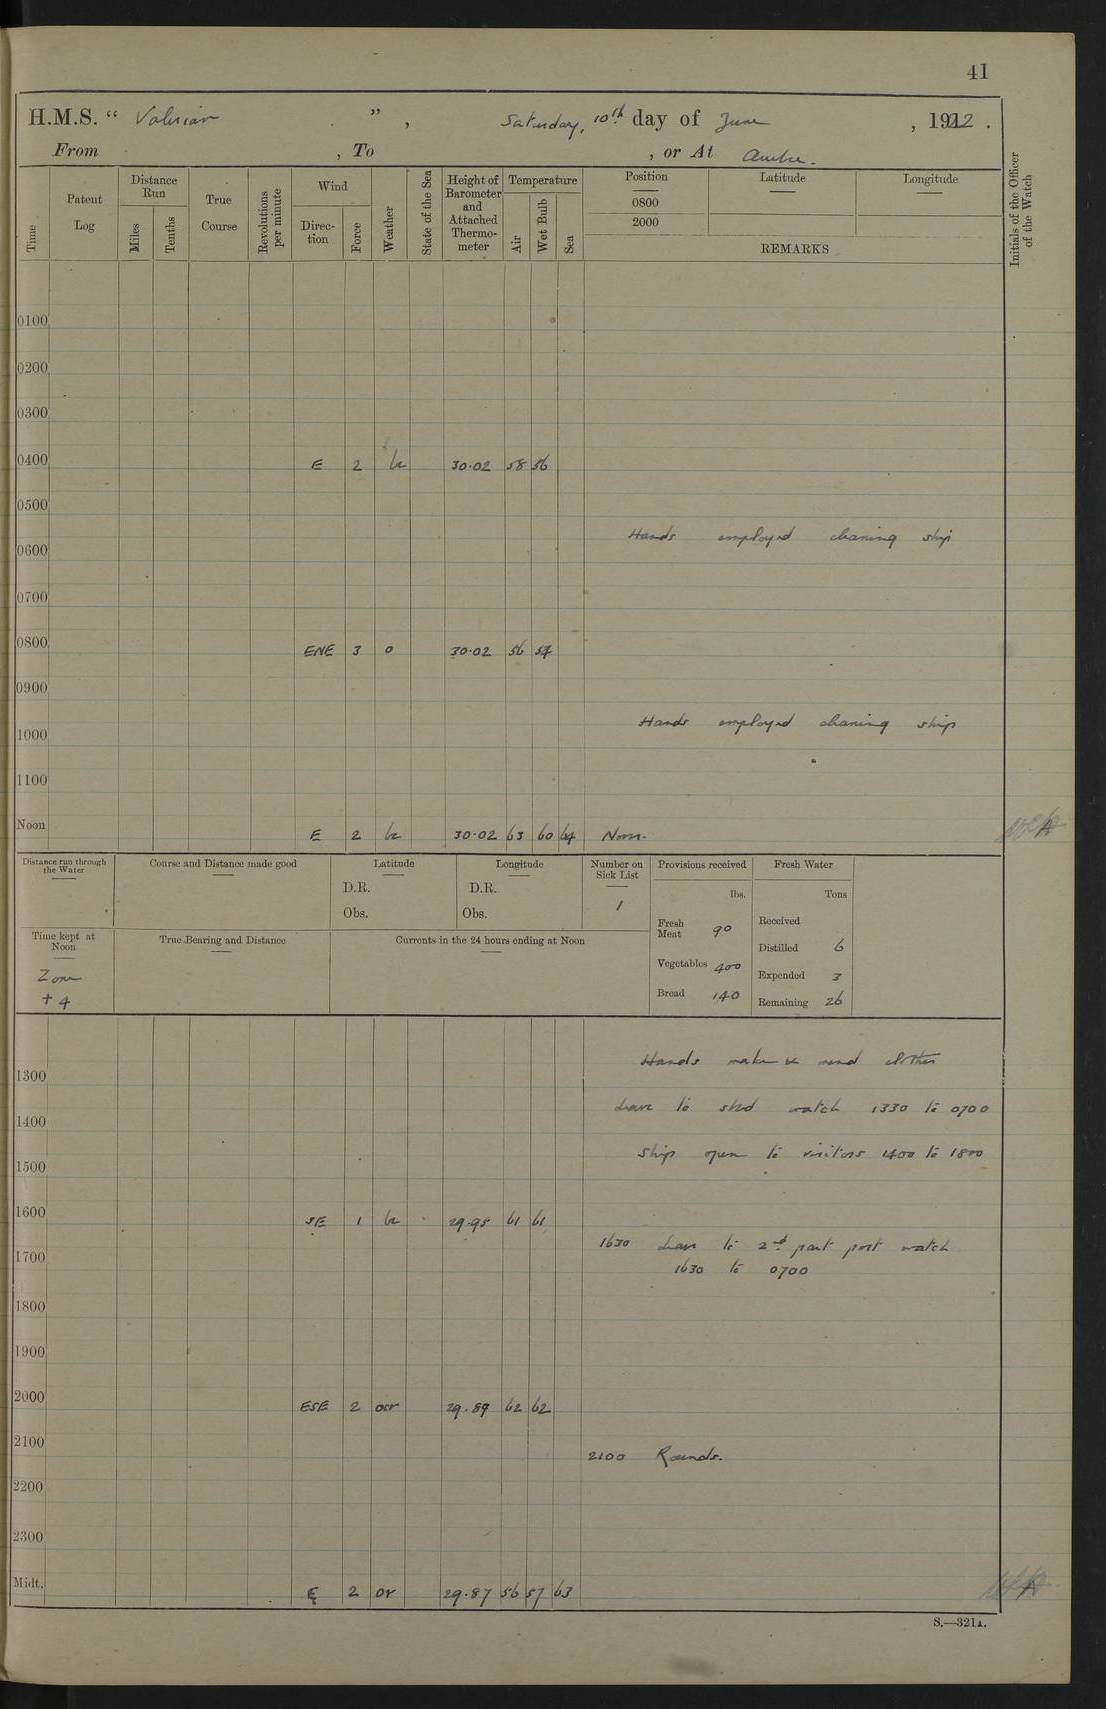 41
H.M.S. “ Valerian ” , Saturday, 10th day of June , 1922 .
From , To , or At
Time
Patent Log
Distance Run
Miles
Tenths
True Course
Revolutions per minute
Wind
Direction
Force
Weather
State of the Sea
Height of Barometer and Attached Thermometer
Temperature
Air
Wet Bulb
Sea
Position
0800
2000
Latitude
Longitude
REMARKS
Initials of the Officer of the Watch
0100
0200
0300
0400 E 2 bc 30·02 58 56
0500
Hands employed cleaning ship
0600
0700
0800 ENE 3 o 30·02 56 54
0900
Hands employed cleaning ship
1000
1100
Noon E 2 bc 30·02 63 60 64 Noon.
Distance run through the Water
Course and Distance made good
Latitude
D.R.
Obs.
Longitude
D.R.
Obs.
Number on Sick List
1
Provisions received
lbs.
Fresh Meat 90
Vegetables 400
Bread 140
Fresh Water
Tons
Received
Distilled 6
Expended 3
Remaining 26
Time kept at Noon
Zone
+ 4
True Bearing and Distance
Currents in the 24 hours ending at Noon
Hands make & mend clothes
1300
Leave to stbd watch 1330 to 0700
1400
Ship open to visitors 1400 to 1800
1500
1600 SE 1 bc 29·95 61 61
1630 Leave to 2nd part port watch
1630 to 0700
1700
1800
1900
2000 ESE 2 ocr 29·89 62 62
2100
2100 Rounds.
2200
2300
Midt. E 2 or 29·87 56 57 63
S.—321A.